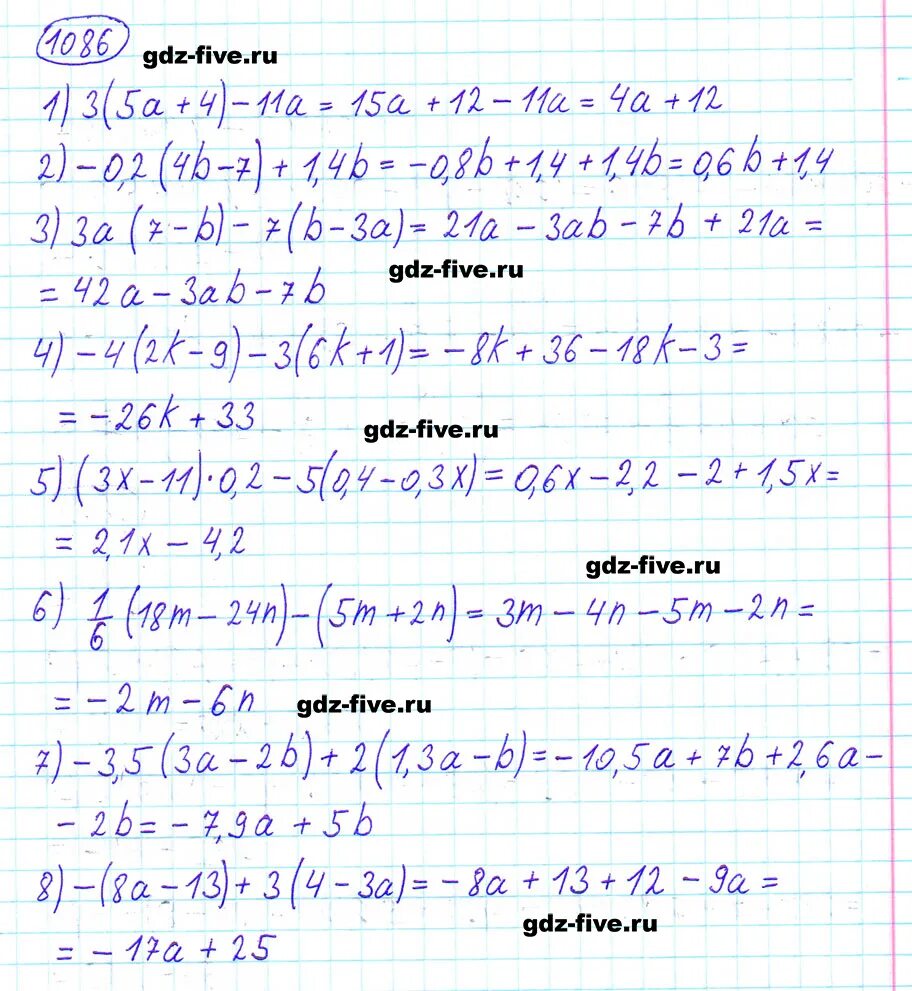 1086
gdz-five.ru
1) 3(5a + 4) - 11a = 15a + 12 - 11a = 4a + 12
2) - 0,2 (4b - 7) + 1,4b = -0,8b + 1,4 + 1,4b = 0,6b + 1,4
3) 3a (7 - b) - 7(b - 3a) = 21a - 3ab - 7b + 21a =
gdz-five.ru
= 42a - 3ab - 7b
4) - 4(2k - 9) - 3(6k + 1) = - 8k + 36 - 18k - 3 =
= - 26k + 33
gdz-five.ru
5) (3x - 11) · 0,2 - 5(0,4 - 0,3x) = 0,6x - 2,2 - 2 + 1,5x =
= 2,1x - 4,2
gdz-five.ru
6) 1/6 (18m - 24n) - (5m + 2n) = 3m - 4n - 5m - 2n =
= - 2m - 6n
gdz-five.ru
7) - 3,5 (3a - 2b) + 2(1,3a - b) = - 10,5a + 7b + 2,6a -
- 2b = - 7,9a + 5b
8) - (8a - 13) + 3(4 - 3a) = - 8a + 13 + 12 - 9a =
gdz-five.ru
= - 17a + 25